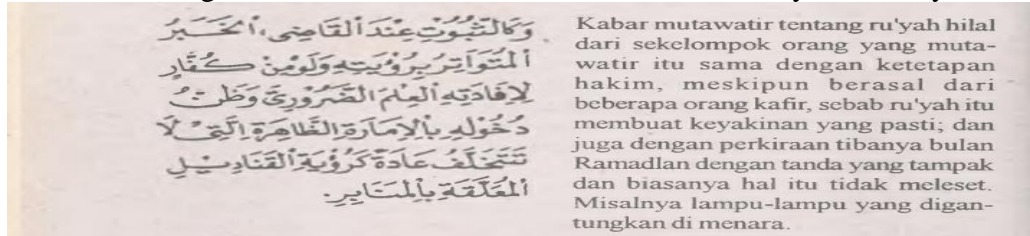 وَكَالثُّبُوْتِ عِنْدَ الْقَاضِى، الْخَبَرُ
الْمُتَوَاتِرُ بِرُؤْيَتِهِ وَلَوْ مِنْ كُفَّارٍ
لِإِفَادَتِهِ الْعِلْمَ الضَّرُوْرِيَّ وَظَنُّ
دُخُوْلِهِ بِالْإِمَارَةِ الظَّاهِرَةِ الَّتِيْ لَا
تَتَخَلَّفُ عَادَةً كَرُؤْيَةِ الْقَنَادِيْلِ
الْمُعَلَّقَةِ بِالْمَنَابِرِ.
Kabar mutawatir tentang ru'yah hilal
dari sekelompok orang yang muta-
watir itu sama dengan ketetapan
hakim, meskipun berasal dari
beberapa orang kafir, sebab ru'yah itu
membuat keyakinan yang pasti; dan
juga dengan perkiraan tibanya bulan
Ramadlan dengan tanda yang tampak
dan biasanya hal itu tidak meleset.
Misalnya lampu-lampu yang digan-
tungkan di menara.